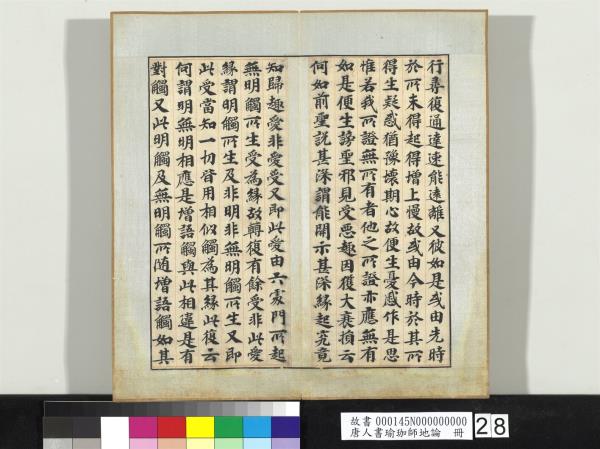 行尋復通達速能遠離又彼如是或由先時
於所未得起得增上慢故或由今時於其所
得生疑惑猶豫壞期心故便生憂慼作是思
惟若我所證無所有者他之所證亦應無有
如是便生謗聖邪見受惡趣因獲大衰損云
何如前聖說甚深謂能開示甚深緣起究竟
知歸趣愛非愛愛又即此愛由六處門所起
無明觸所生受為緣故轉復有餘受非此愛
緣謂明觸所生及非明非無明觸所生又即
此受當知一切皆用相似觸為其緣此復云
何謂明無明相應是增語觸與此相違是有
對觸又此明觸及無明觸所隨增語觸如其
故書 000145N000000000
唐人書瑜珈師地論 冊
28